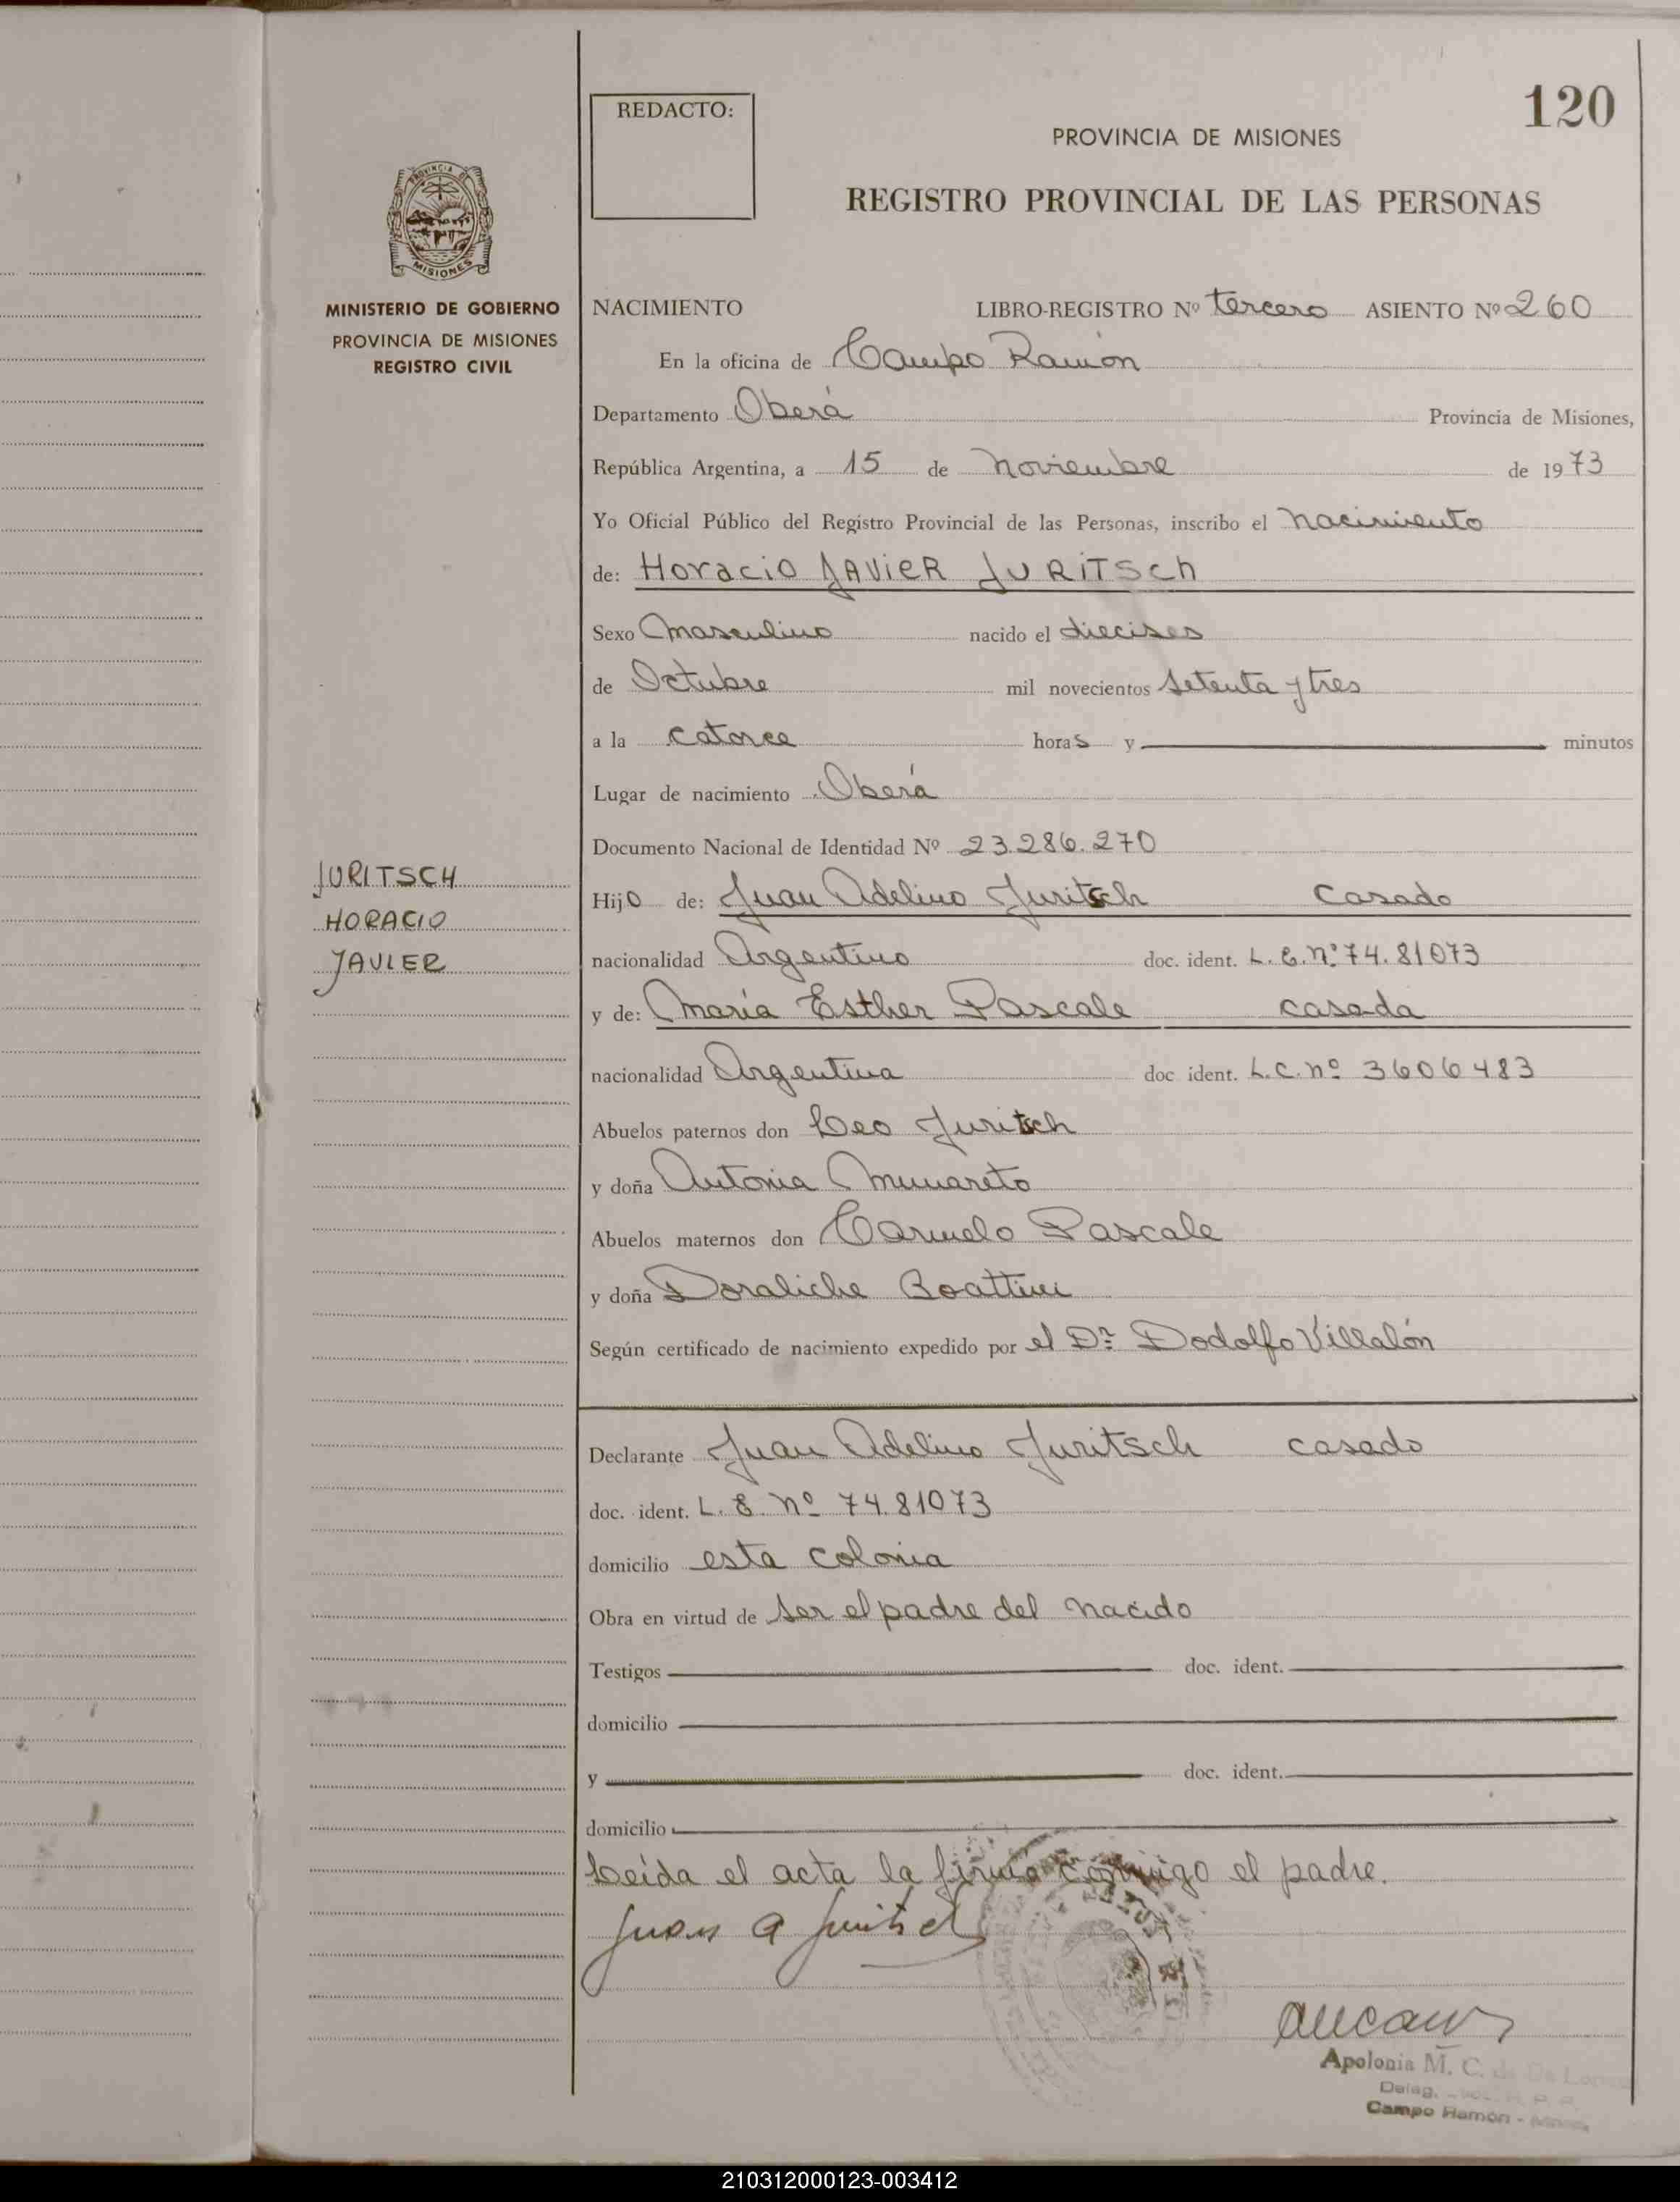 120
REDACTO:
PROVINCIA DE MISIONES
REGISTRO PROVINCIAL DE LAS PERSONAS
PROVINCIA DE
MISIONES
MINISTERIO DE GOBIERNO
PROVINCIA DE MISIONES
REGISTRO CIVIL
NACIMIENTO LIBRO-REGISTRO Nº tercero ASIENTO Nº 260
En la oficina de Campo Ramón
Departamento Oberá Provincia de Misiones,
República Argentina, a 15 de Noviembre de 1973
Yo Oficial Público del Registro Provincial de las Personas, inscribo el Nacimiento
de: Horacio JAVIER JURITSch
Sexo Masculino nacido el diecises
de Octubre mil novecientos setenta y tres
a la catorce horas y minutos
Lugar de nacimiento Oberá
Documento Nacional de Identidad Nº 23.286.270
JURITSCH
HORACIO
JAVIER
Hijo de: Juan Adelino Juritsch casado
nacionalidad Argentino doc. ident. L.E.Nº 74.81073
y de: María Esther Pascale casada
nacionalidad Argentina doc ident. L.C.Nº 3606483
Abuelos paternos don Leo Juritsch
y doña Antonia Munareto
Abuelos maternos don Carmelo Pascale
y doña Doraliche Boattini
Según certificado de nacimiento expedido por el Dr. Dodolfo Villalón
Declarante Juan Adelino Juritsch casado
doc. ident. L.E. Nº 74.81073
domicilio esta colonia
Obra en virtud de ser el padre del nacido
Testigos doc. ident.
domicilio
y doc. ident.
domicilio
Leída el acta la firma conmigo el padre.
Juan A Juritsch
Apolonia M. C. de De
Deleg. R. P. P.
Campo Ramón -
210312000123-003412